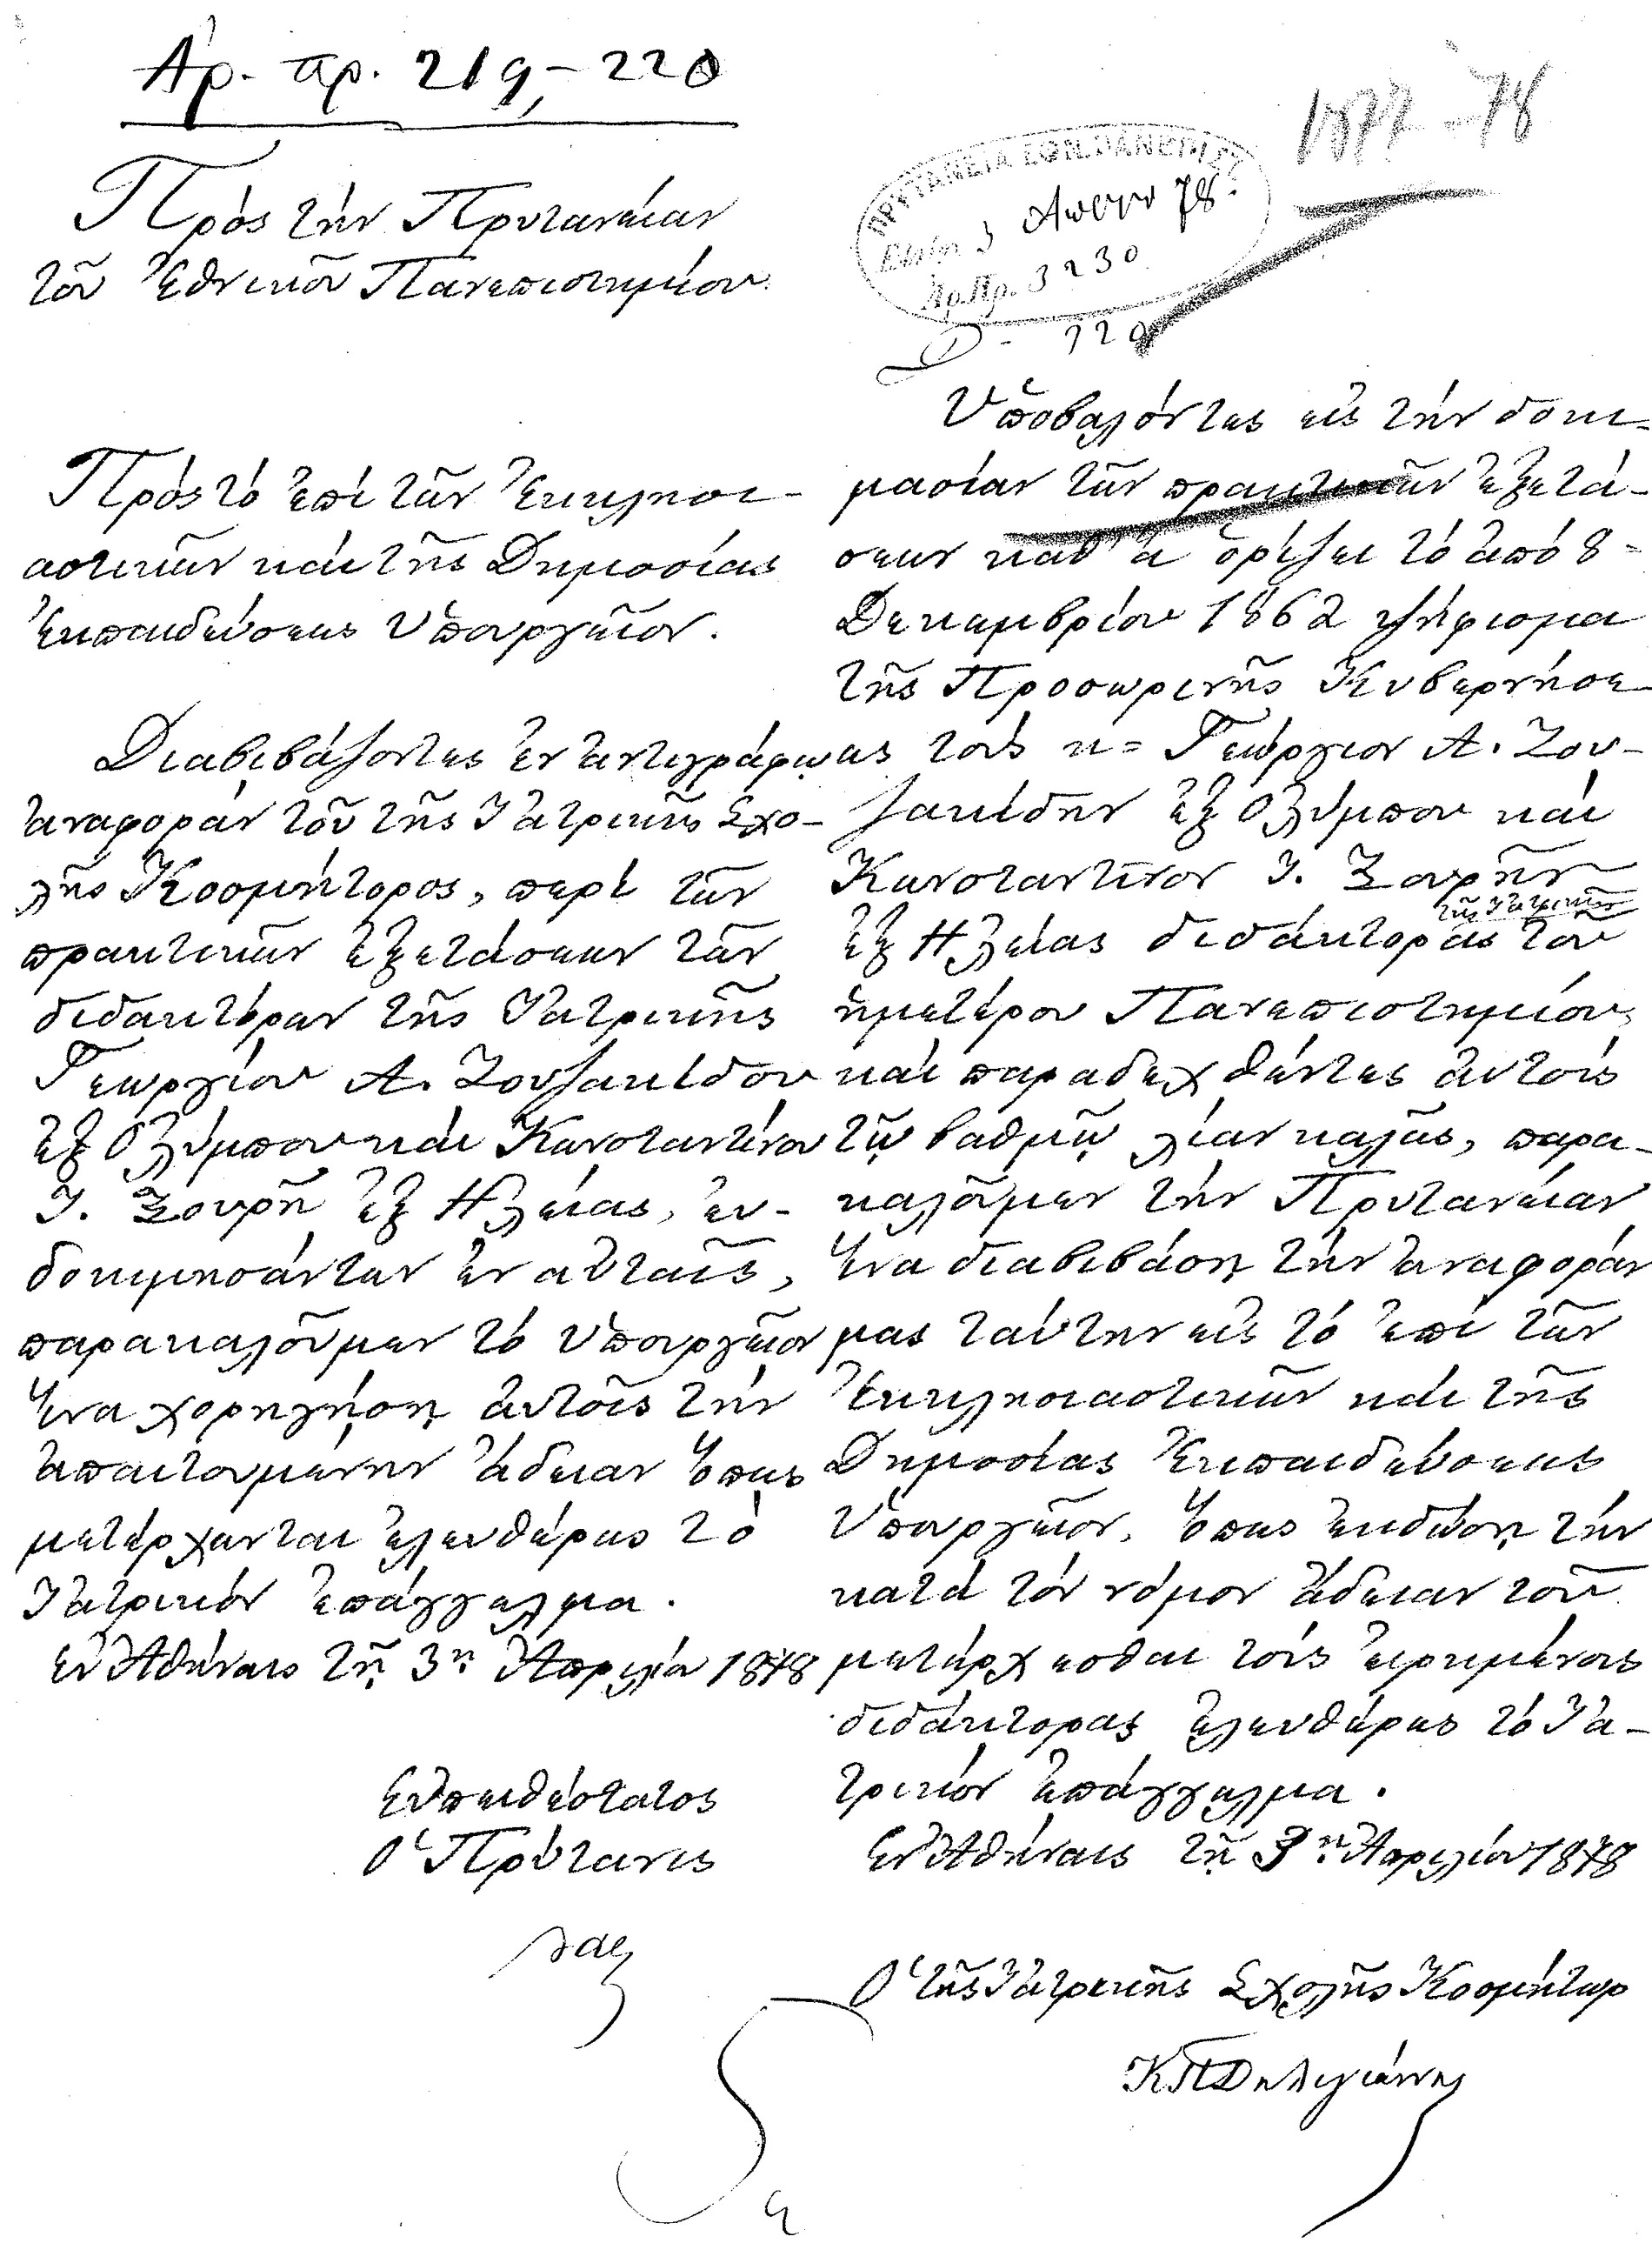 Ἀρ. πρ. 219–220
1877–78
Πρὸς τὴν Πρυτανείαν
τοῦ Ἐθνικοῦ Πανεπιστημίου.
ΠΡΥΤΑΝΕΙΑ ΕΘΝ. ΠΑΝΕΠΙΣΤ.
3 78.
Ἀρ. Πρ. 3230
Πρὸς τὸ ἐπὶ τῶν Ἐκκλησι-
αστικῶν καὶ τῆς Δημοσίας
Ἐκπαιδεύσεως Ὑπουργεῖον.
Διαβιβάζοντες ἐν ἀντιγράφῳ
ἀναφορὰν τοῦ τῆς Ἰατρικῆς Σχο-
λῆς Κοσμήτορος, περὶ τῶν
πρακτικῶν ἐξετάσεων τῶν
διδακτόρων τῆς Ἰατρικῆς
Γεωργίου Α. Ζουζακίδου
ἐξ Ὀλύμπου καὶ Κωνσταντίνου
Ι. Ξουρῆ ἐξ Ἠλείας, εὐ-
δοκιμησάντων ἐν αὐταῖς,
παρακαλοῦμεν τὸ Ὑπουργεῖον
ἵνα χορηγήσῃ αὐτοῖς τὴν
ἀπαιτουμένην ἄδειαν ὅπως
μετέρχωνται ἐλευθέρως τὸ
Ἰατρικὸν ἐπάγγελμα.
Ἐν Ἀθήναις τῇ 3ῃ Ἀπριλίου 1878
Εὐπειθέστατος
Ὁ Πρύτανις
Ὑποβαλόντες εἰς τὴν δοκι-
μασίαν τῶν πρακτικῶν ἐξετά-
σεων καθ' ἃ ὁρίζει τὸ ἀπὸ 8=
Δεκεμβρίου 1862 ψήφισμα
τῆς Προσωρινῆς Κυβερνήσε-
ως τοὺς κ= Γεώργιον Α. Ζου-
ζακίδην ἐξ Ὀλύμπου καὶ
Κωνσταντῖνον Ι. Ξουρῆν
τῆς Ἰατρικῆς
ἐξ Ἠλείας διδάκτορας τοῦ
ἡμετέρου Πανεπιστημίου,
καὶ παραδεχθέντες αὐτοὺς
τῷ βαθμῷ λίαν καλῶς, παρα-
καλοῦμεν τὴν Πρυτανείαν
ἵνα διαβιβάσῃ τὴν ἀναφορὰν
μας ταύτην εἰς τὸ ἐπὶ τῶν
Ἐκκλησιαστικῶν καὶ τῆς
Δημοσίας Ἐκπαιδεύσεως
Ὑπουργεῖον, ὅπως ἐκδώσῃ τὴν
κατὰ τὸν νόμον ἄδειαν τοῦ
μετέρχεσθαι τοὺς εἰρημένους
διδάκτορας ἐλευθέρως τὸ Ἰα-
τρικὸν ἐπάγγελμα.
Ἐν Ἀθήναις τῇ 3ῃ Ἀπριλίου 1878
Ὁ τῆς Ἰατρικῆς Σχολῆς Κοσμήτωρ
Κ Π Δηλιγιάννης